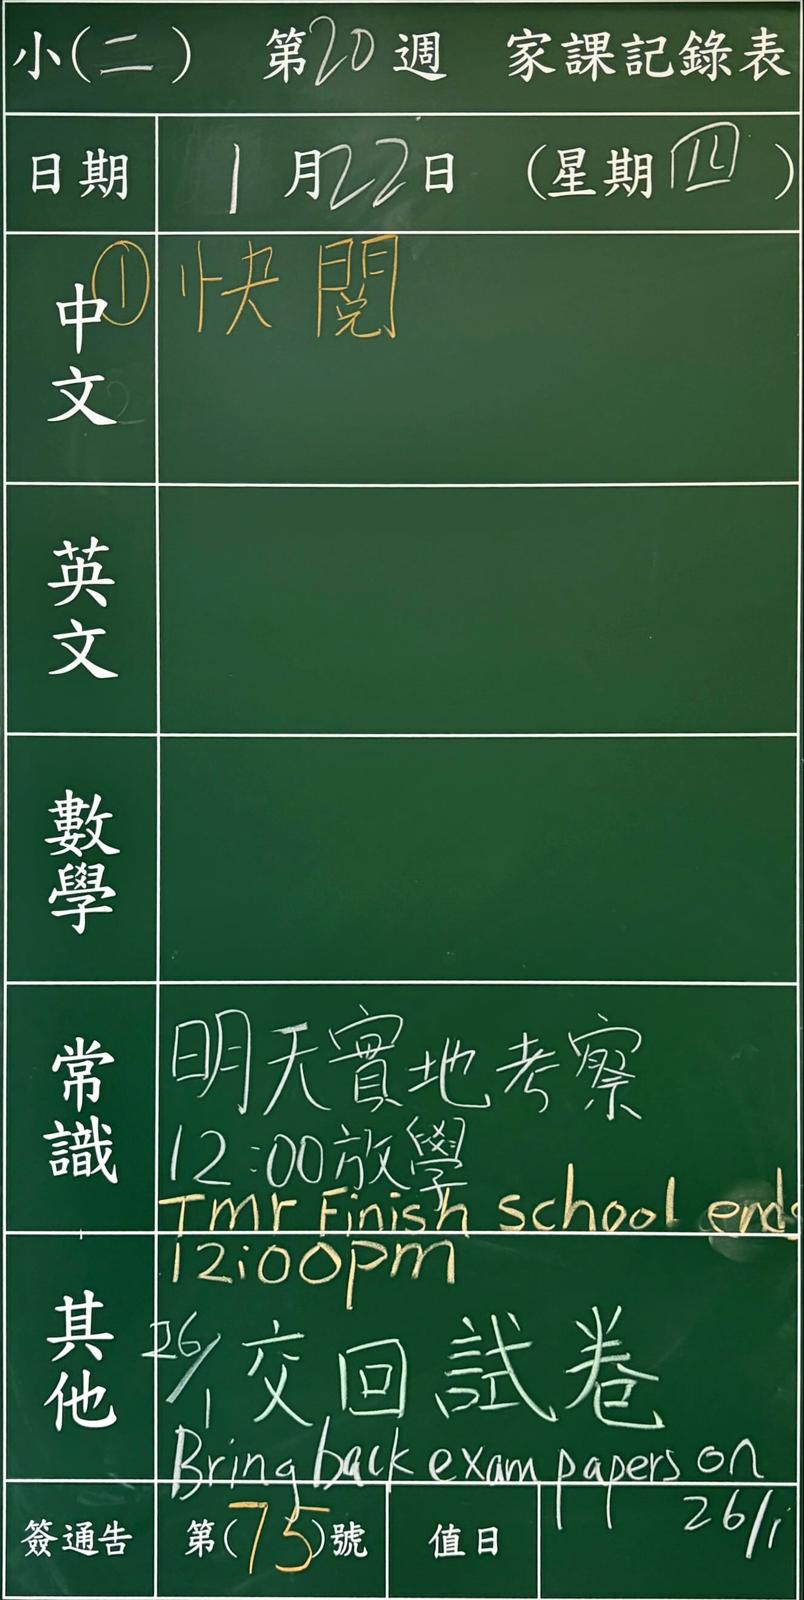 小(二) 第20週 家課記錄表
日期 1月22日 (星期四)
中文 ① 快閱
英文
數學
常識 明天實地考察
12:00放學
Tmr Finish school ends
12:00pm
其他 26/1 交回試卷
Bring back exam papers on
26/1
簽通告 第(75)號 值日